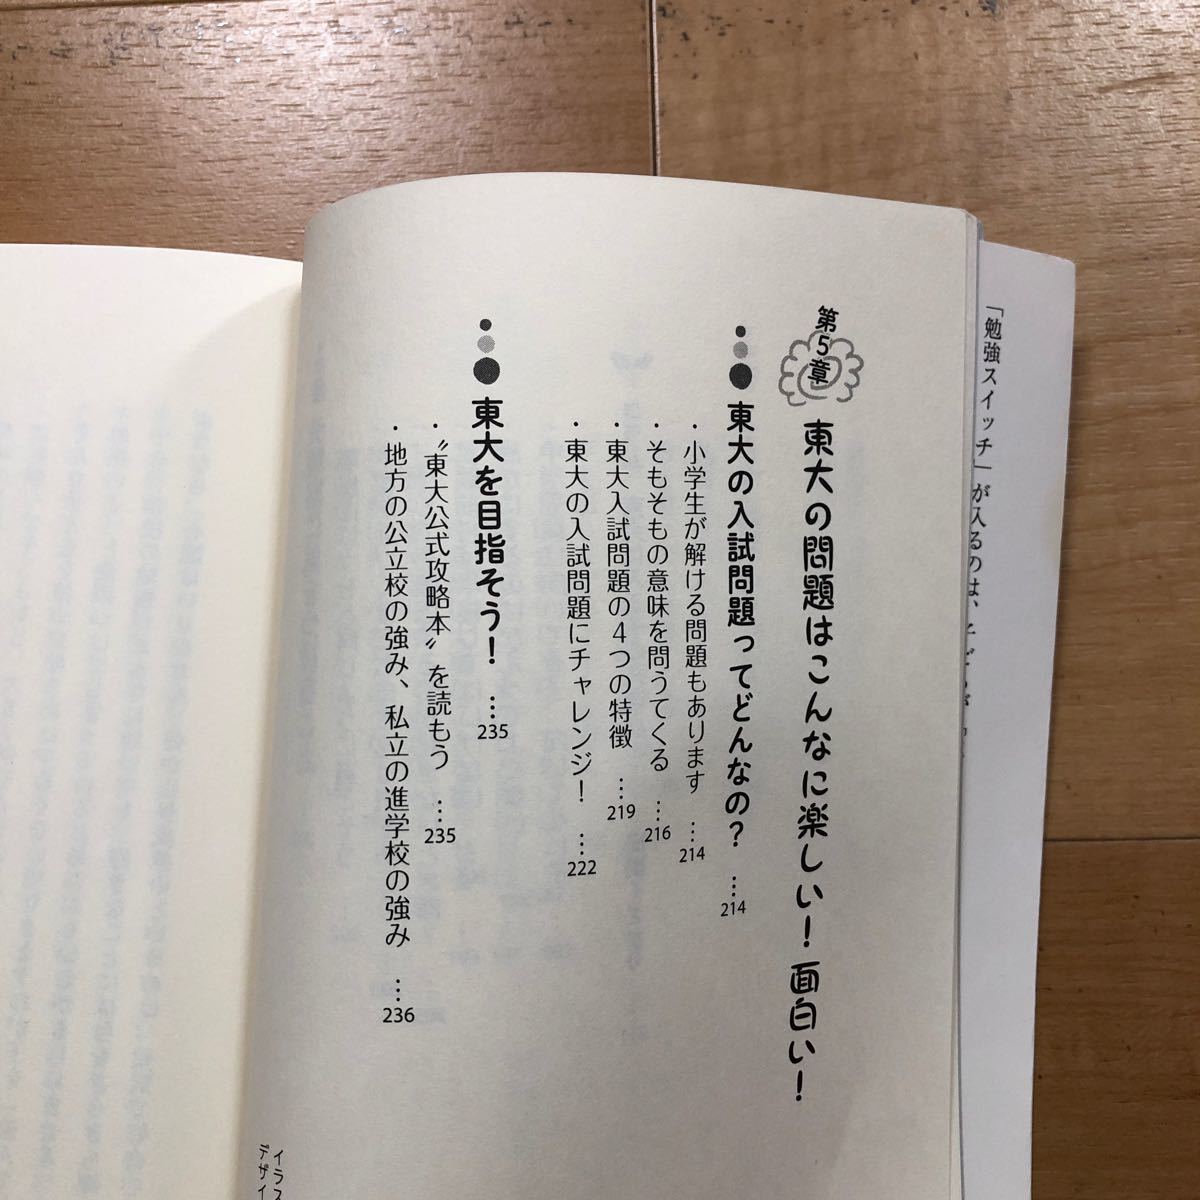 「勉強スイッチ」が入るのは、
第5章 東大の問題はこんなに楽しい！面白い！
東大の入試問題ってどんなの？ …214
・小学生が解ける問題もあります …214
・そもそもの意味を問うてくる …216
・東大入試問題の4つの特徴 …219
・東大の入試問題にチャレンジ！ …222
東大を目指そう！ …235
・〝東大公式攻略本〟を読もう …235
・地方の公立校の強み、私立の進学校の強み …236
イラス
デザイ